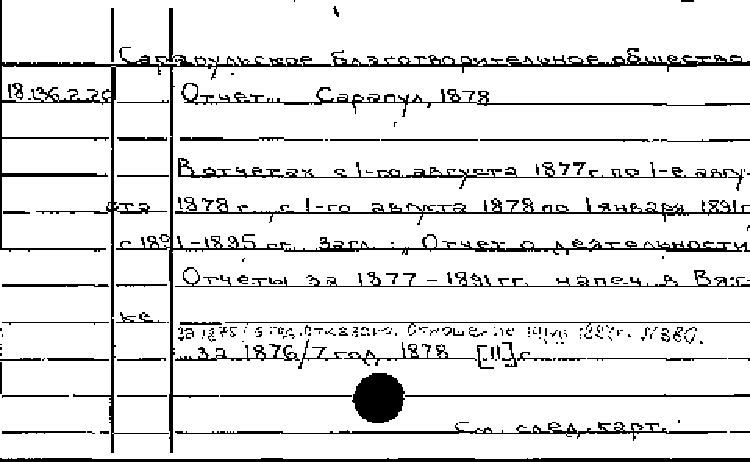 Сарапульское благотворительное общество
18.136.2.20
Отчет... Сарапул, 1878
В отчетах с 1-го августа 1877 г. по 1-е авгу-
ста 1878 г., с 1-го августа 1878 по 1 января 1891 г
с 1891-1895 гг. Загл.: Отчет о деятельности
Отчеты за 1877-1891 гг. напеч. в Вят-
ке
за 1875/6 год отказано. Отношение 1887 г. № 880.
...за 1876/7 год. 1878 [11] с.
См. след. карт.